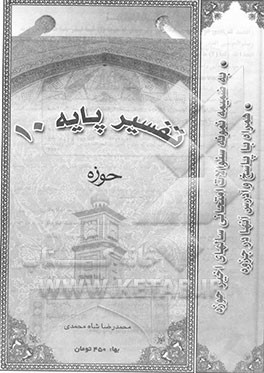 تفسیر پایه ۱۰
حوزه
محمدرضا شاه محمدی
بهاء ۴۵۰ تومان
● به ضمیمه نمونه سئوالات امتحانی سالهای اخیر حوزه
● همراه با پاسخ و آدرس آنها در جزوه
WWW.KETAB.IR